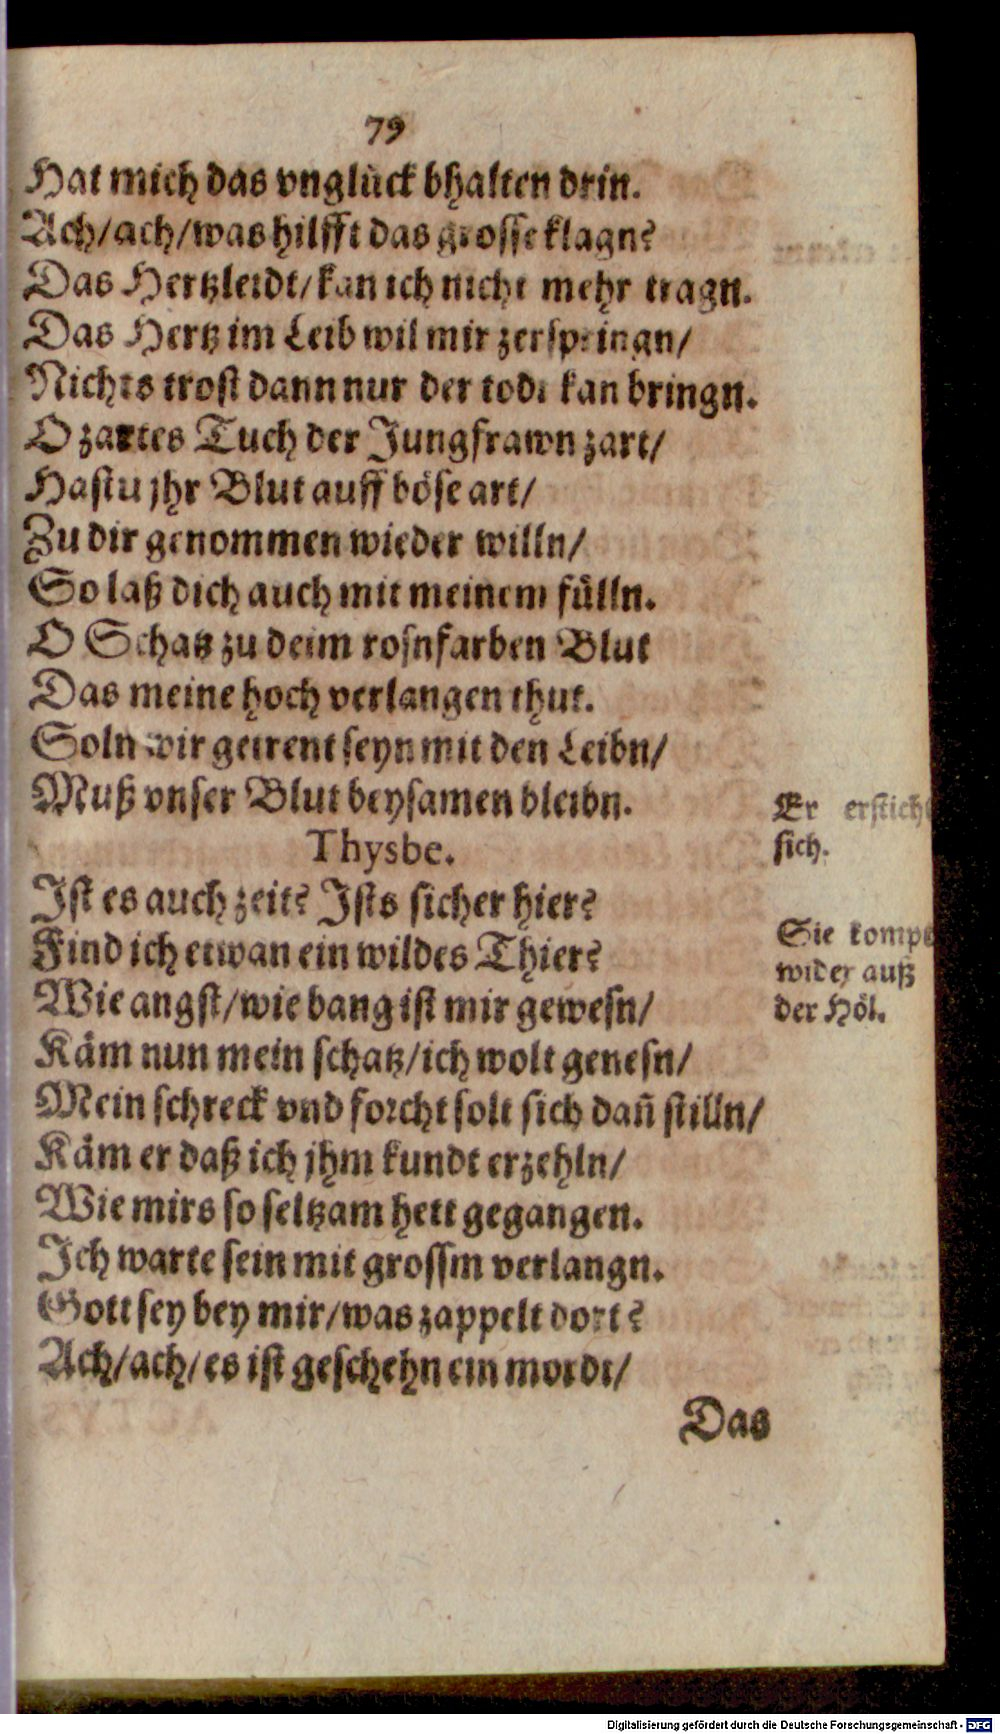 79
Hat mich das vnglück bhalten drin.
Ach/ach/was hilfft das grosse klagn?
Das Hertzleidt/kan ich nicht mehr tragn.
Das Hertz im Leib wil mir zerspringn/
Nichts trost dann nur der todt kan bringn.
O zartes Tuch der Jungfrawn zart/
Hastu jhr Blut auff böse art/
Zu dir genommen wieder willn/
So laß dich auch mit meinem fülln.
O Schatz zu deim rosnfarben Blut
Das meine hoch verlangen thut.
Soln wir getrent seyn mit den Leibn/
Muß vnser Blut beysamen bleibn.
Er ersticht
sich.
Thysbe.
Ist es auch zeit? Ists sicher hier?
Find ich etwan ein wildes Thier?
Sie kompt
wider auß
der Höl.
Wie angst/wie bang ist mir gewesn/
Käm nun mein schatz/ich wolt genesn/
Mein schreck vnd forcht solt sich dañ stilln/
Käm er daß ich jhm kundt erzehln/
Wie mirs so seltzam hett gegangen.
Ich warte sein mit grossm verlangn.
Gott sey bey mir/was zappelt dort?
Ach/ach/es ist geschehn ein mordt/
Das
Digitalisierung gefördert durch die Deutsche Forschungsgemeinschaft - DFG